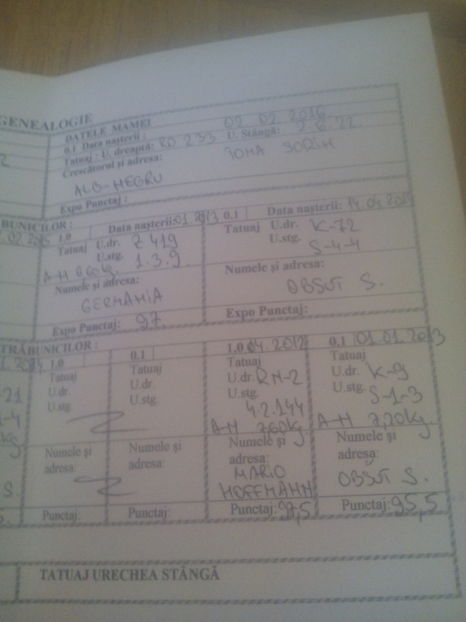 GENEALOGIE
DATELE MAMEI
0.1 Data nașterii: 02 02 2016
Tatuaj: U. dreaptă: RO 233 U. Stângă: 2.6.22
Crescătorul și adresa: TOMA SORIN
ALB-NEGRU
Expo Punctaj:
BUNICILOR:
1.0 Data nașterii: 01 2013
Tatuaj U.dr. Z 419
U.stg. 1.3.9
A-H 6,60kg.
Numele și adresa:
GERMANIA
Expo Punctaj: 97
0.1 Data nașterii: 14.04
Tatuaj U.dr. K-72
U.stg. S-4-4
Numele și adresa:
OBSUT S.
Expo Punctaj:
TRĂBUNICILOR:
1.0
Tatuaj
U.dr.
U.stg.
Numele și
adresa:
Punctaj:
0.1
Tatuaj
U.dr.
U.stg.
Numele și
adresa:
Punctaj:
1.0 04.2012
Tatuaj
U.dr. RN-2
U.stg. 4.2.144
A-H 7,60kg
Numele și
adresa:
MARIO
HOFFMANN
Punctaj: 97,5
0.1 01.01.2013
Tatuaj
U.dr. K-9
U.stg. S-1-3
A-H 7,20kg.
Numele și
adresa:
OBSUT S.
Punctaj: 95,5
TATUAJ URECHEA STÂNGĂ